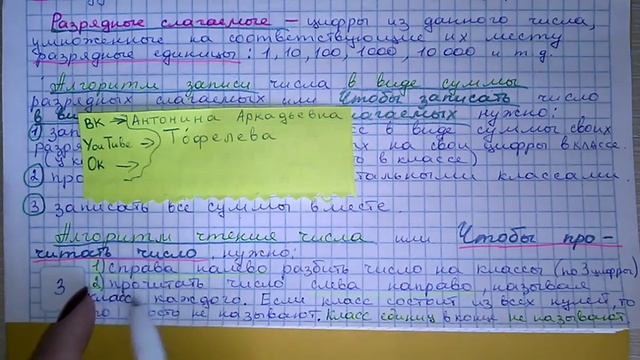 Разрядные слагаемые – цифры из данного числа,
умноженные на соответствующие их месту
разрядные единицы: 1, 10, 100, 1000, 10 000 и т.д.
Алгоритм записи числа в виде суммы
разрядных слагаемых или Чтобы записать число
в слагаемых нужно:
ВК → Антонина Аркадьевна
YouTube → Тофелева
Ок →
1 в виде суммы своих
на свои цифры в классе.
в классе)
2 остальными классами.
3 записать все суммы вместе.
Алгоритм чтения числа или Чтобы про-
читать число, нужно:
1) справа налево разбить число на классы (по 3 цифры)
3 2) прочитать число слева направо, называя
класс каждого. Если класс состоит из всех нулей, то
не называют. Класс единиц в конце не называют